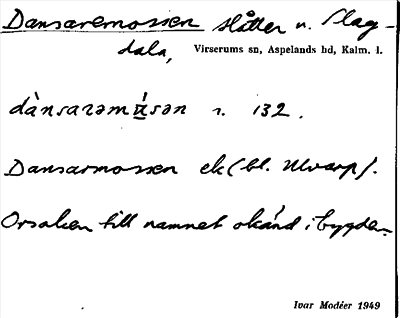 Dansaremossen slåtter u. Slag-
dala, Virserums sn, Aspelands hd, Kalm. l.
dànsarəmɑ́sən r. 132.
Dansarmossen ek (bl. Ulvarp).
Orsaken till namnet okänd i bygden.
Ivar Modéer 1949